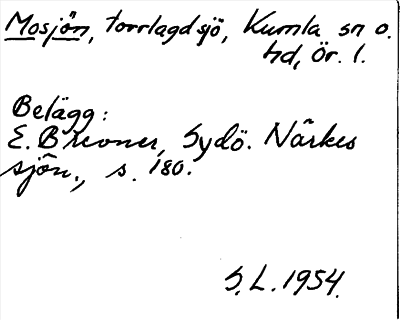 Mosjön, torrlagd sjö, Kumla sn o.
hd, Ör. l.
Belägg:
E. Brevner, Sydö. Närkes
sjön., s. 180.
S.L. 1954.